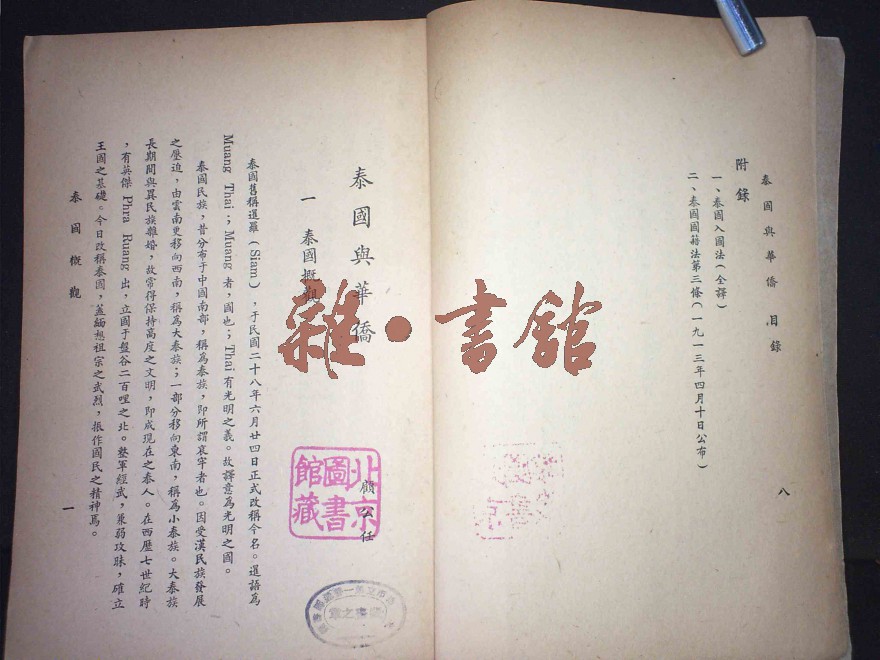 泰國與華僑 目錄
附錄
一、泰國入國法(全譯)
二、泰國國籍法第三條(一九一三年四月十日公布)
八
泰國與華僑
顧公任
一 泰國概觀
泰國舊稱暹羅(Siam),于民國二十八年六月廿四日正式改稱今名。暹語為
Muang Thai;Muang 者,國也;Thai 有光明之義。故譯意為光明之國。
泰國民族,昔分布于中國南部,稱為泰族,即所謂哀牢者也。因受漢民族發展
之壓迫,由雲南更移向西南,稱為大泰族;一部分移向東南,稱為小泰族。大泰族
長期間與異民族離婚,故常得保持高度之文明,即成現在之泰人。在西歷七世紀時
,有英傑 Phra Ruang 出,立國于盤谷二百哩之北。整軍經武,兼弱攻昧,確立
王國之基礎。今日改稱泰國,蓋緬想祖宗之武烈,振作國民之精神焉。
泰國概觀
一
北京
圖書
館藏
雜·書館